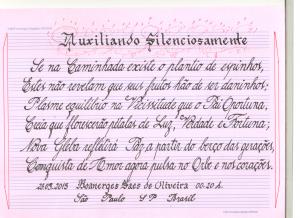 Auxiliando Silenciosamente
Se na Caminhada existe o plantio de espinhos,
Estes não revelam que seus frutos hão de ser daninhos;
Plasme equilíbrio na Vicissitude que o Pai Oportuna,
Creia que florescerão pétalas de Luz, Verdade e Fortuna;
Nova Gleba refletirá Paz a partir do berço das gerações,
Conquista de Amor agora pulsa no Orbe e nos corações.
21.03.2013 Boanerges Saes de Oliveira
São Paulo SP Brasil